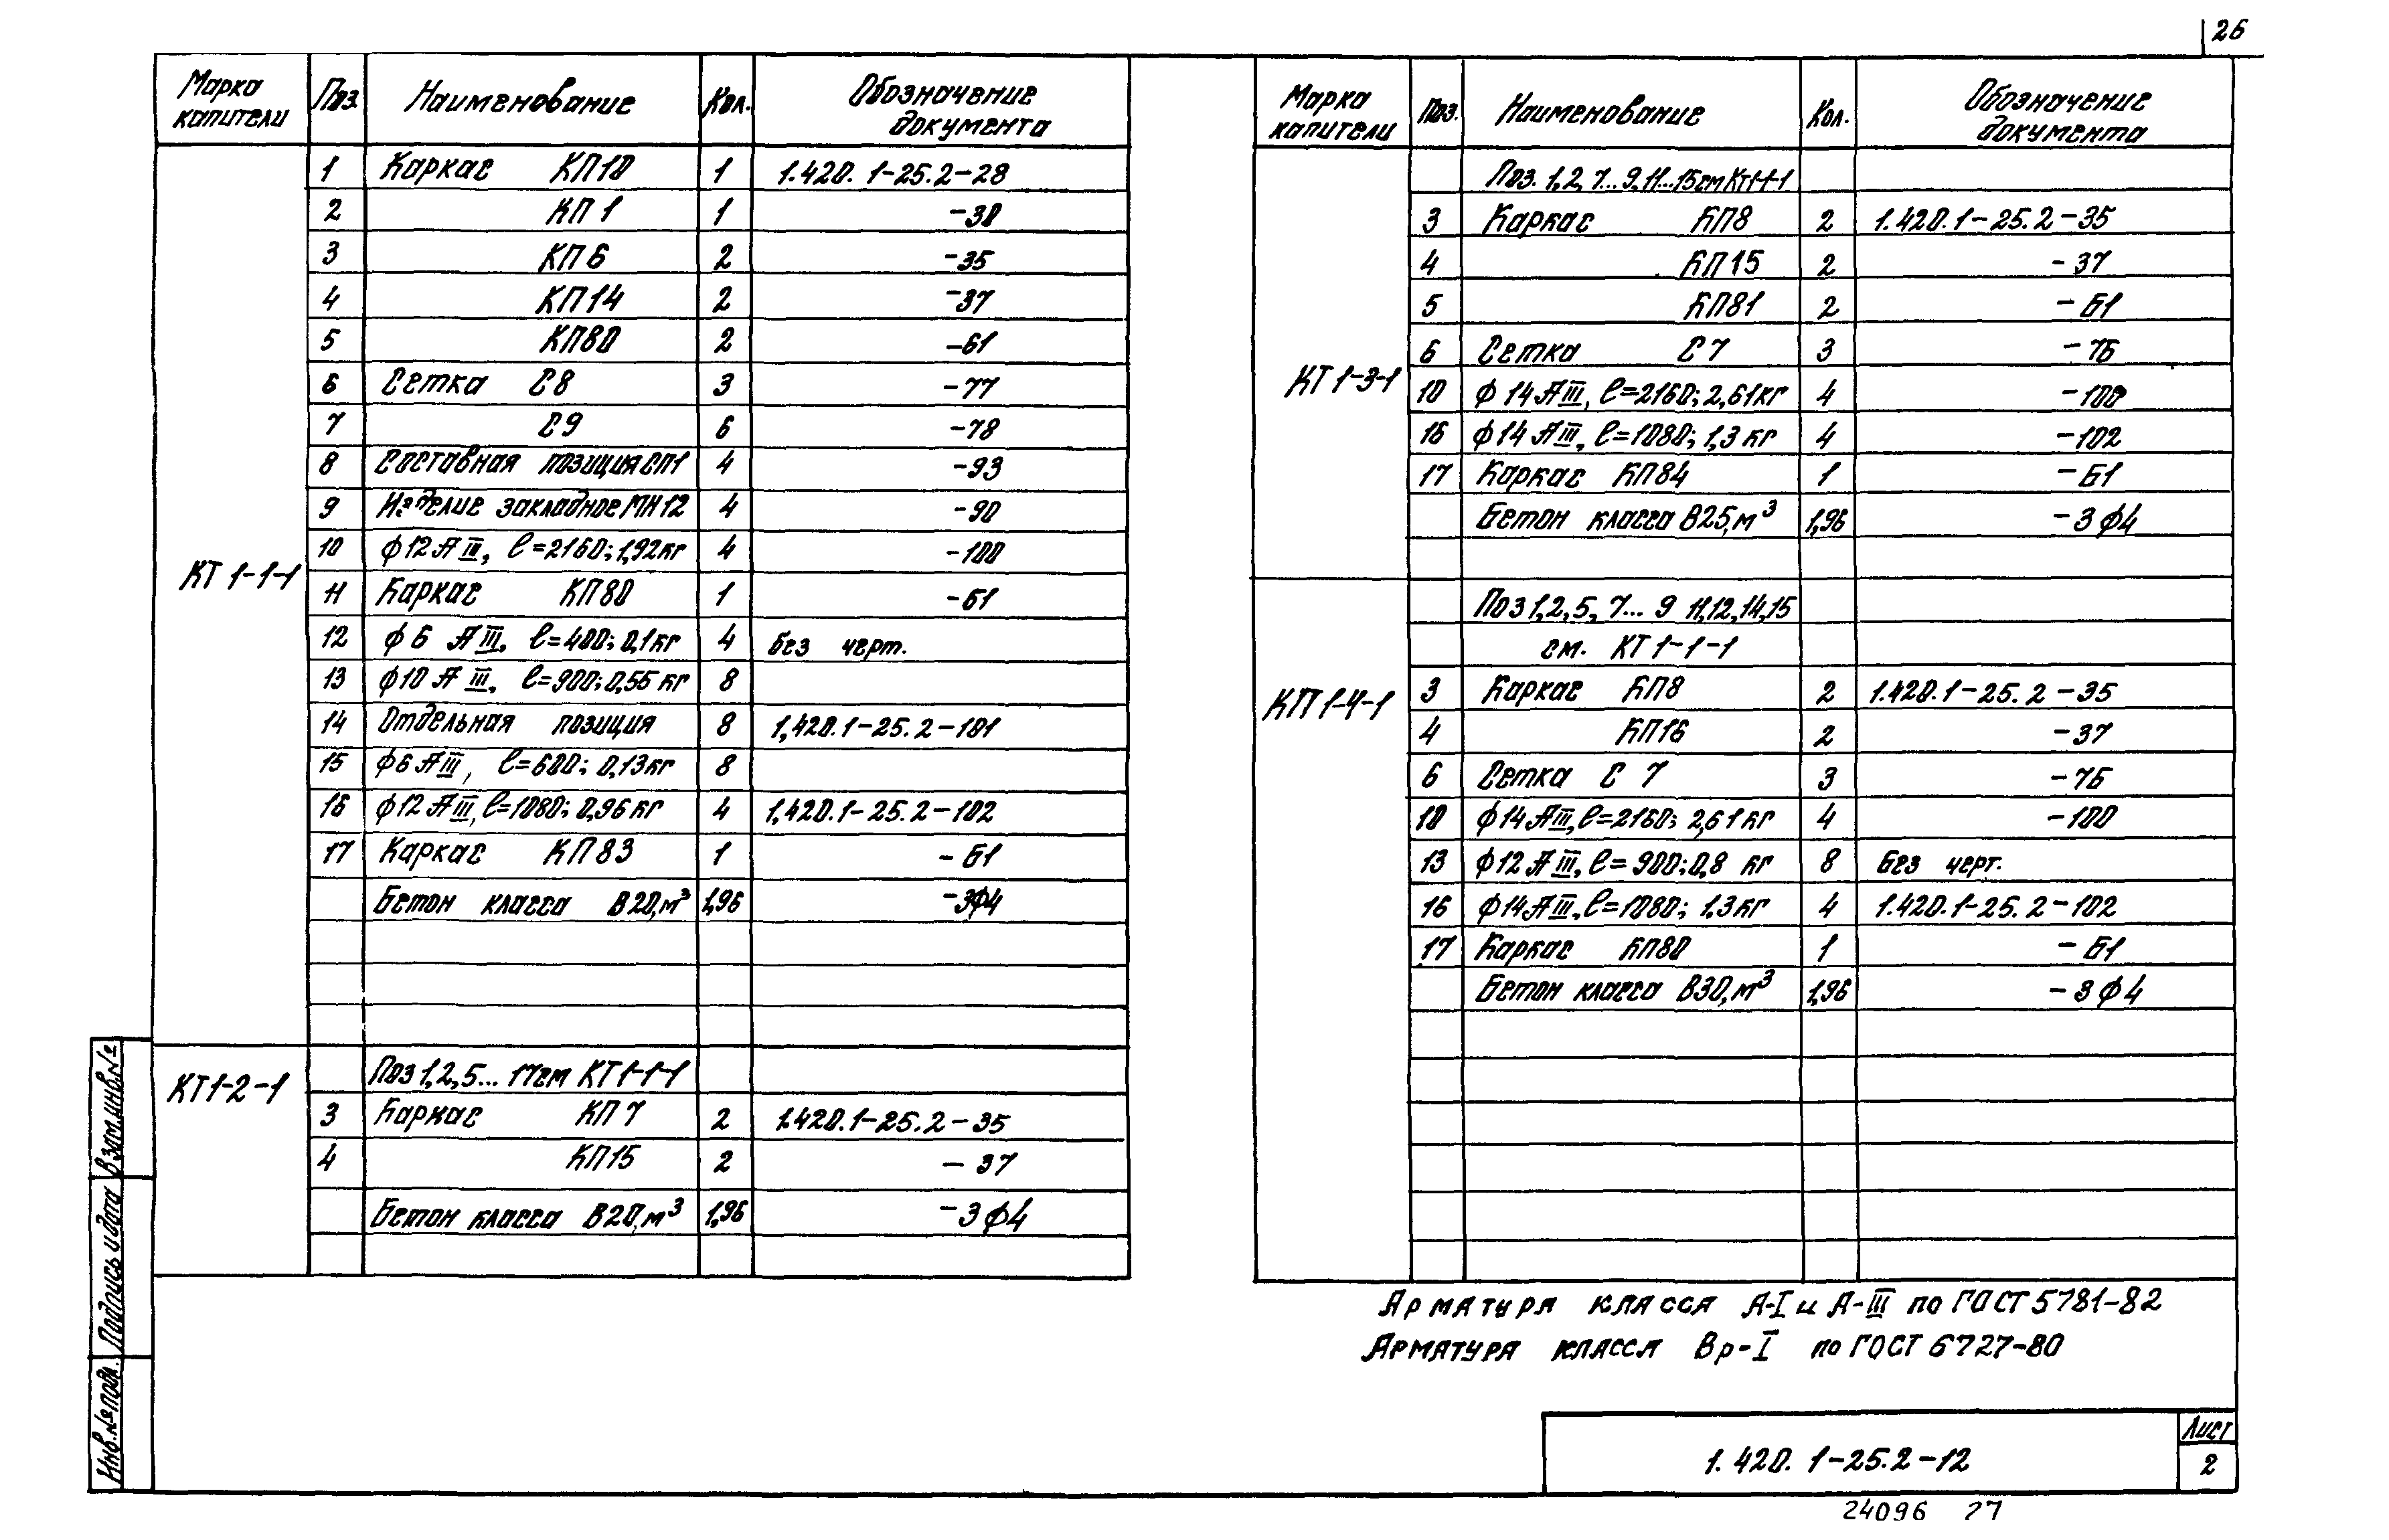 26
Марка капители Поз. Наименование Кол. Обозначение документа
КТ 1-1-1
1 Каркас КП10 1 1.420.1-25.2-28
2 КП1 1 -30
3 КП6 2 -35
4 КП14 2 -37
5 КП80 2 -61
6 Сетка С8 3 -77
7 С9 6 -78
8 Составная позиция СП1 4 -93
9 Изделие закладное МН12 4 -90
10 ф12 А III, ℓ=2160; 1,92кг 4 -100
11 Каркас КП80 1 -61
12 ф6 А III, ℓ=400; 0,1кг 4 без черт.
13 ф10 А III, ℓ=900; 0,56 кг 8
14 Отдельная позиция 8 1,420.1-25.2-101
15 ф6 А III, ℓ=600; 0,13кг 8
16 ф12 А III, ℓ=1080; 0,96 кг 4 1,420.1-25.2-102
17 Каркас КП83 1 -61
Бетон класса В20,м³ 1,96 -3ф4
КТ1-2-1
Поз 1,2,5... 17см КТ1-1-1
3 Каркас КП7 2 1.420.1-25.2-35
4 КП15 2 -37
Бетон класса В20,м³ 1,96 -3ф4
Марка капители Поз. Наименование Кол. Обозначение документа
КТ 1-3-1
Поз. 1,2, 7...9, 11...15см КТ1-1-1
3 Каркас КП8 2 1.420.1-25.2-35
4 КП15 2 -37
5 КП81 2 -61
6 Сетка С7 3 -76
10 ф14 А III, ℓ=2160; 2,61кг 4 -100
16 ф14 А III, ℓ=1080; 1,3 кг 4 -102
17 Каркас КП84 1 -61
Бетон класса В25,м³ 1,96 -3ф4
КП 1-4-1
Поз 1,2,5, 7... 9 11,12,14,15
см. КТ 1-1-1
3 Каркас КП8 2 1.420.1-25.2-35
4 КП16 2 -37
6 Сетка С7 3 -76
10 ф14 А III, ℓ=2160; 2,61 кг 4 -100
13 ф12 А III, ℓ=900; 0,8 кг 8 Без черт.
16 ф14 А III, ℓ=1080; 1,3кг 4 1.420.1-25.2-102
17 Каркас КП80 1 -61
Бетон класса В30,м³ 1,96 -3ф4
Арматура класса А-I и А-III по ГОСТ 5781-82
Арматура класса Вр-I по ГОСТ 6727-80
Взам.инв.№
Подпись и дата
Инв.№ подл.
1.420.1-25.2-12
Лист
2
24096 27